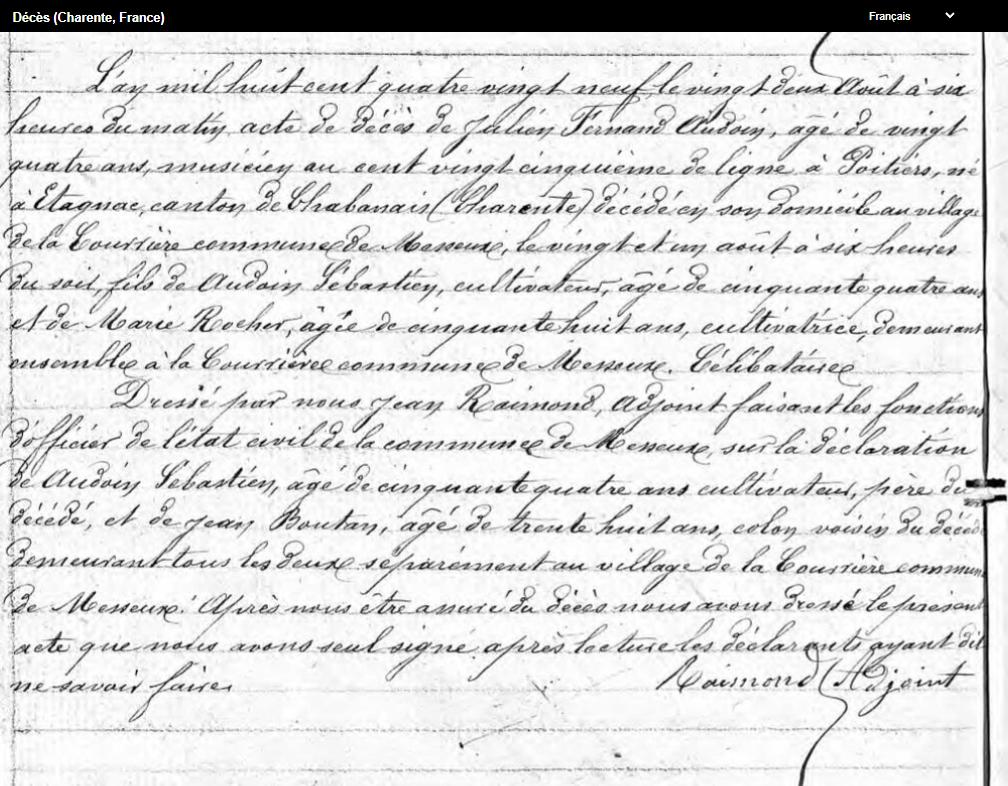 Décès (Charente, France)
Français
L'an mil huit cent quatre vingt neuf le vingt deux Août à six
heures du matin, acte de décès de Julien Fernand Audoin, âgé de vingt
quatre ans, musicien au cent vingt cinquième de ligne à Poitiers, né
à Etagnac, canton de Chabanais (Charente) décédé en son domicile au village
de la Courrière commune de Messeux, le vingt et un août à six heures
du soir, fils de Audoin Sébastien, cultivateur, âgé de cinquante quatre ans
et de Marie Rocher, âgée de cinquante huit ans, cultivatrice, demeurant
ensemble à la Courrière commune de Messeux. Célibataire
Dressé par nous Jean Raimond, Adjoint faisant les fonctions
d'officier de l'état civil de la commune de Messeux, sur la déclaration
de Audoin Sébastien, âgé de cinquante quatre ans cultivateur, père du
décédé, et de Jean Boutan, âgé de trente huit ans, colon voisin du décédé
demeurant tous les deux séparément au village de la Courrière commune
de Messeux. Après nous être assuré du décès nous avons dressé le présent
acte que nous avons seul signé après lecture les déclarants ayant dit
ne savoir faire.
Raimond Adjoint